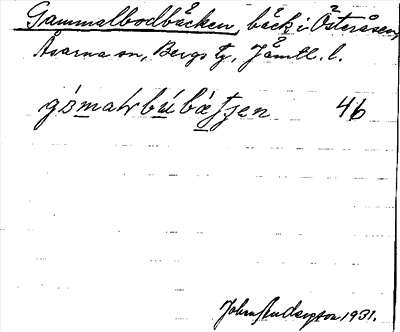 Gammalbodbäcken, bäck i Österåsen,
Åsarna sn, Bergs tg, Jämtl. l.
gámaɫrbúbátʃen 46
John Anderzson 1931.